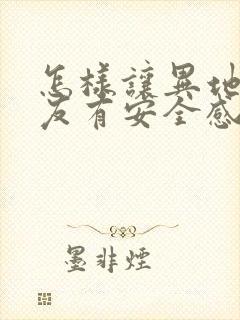 怎樣讓異地
友有安全感
墨非煙